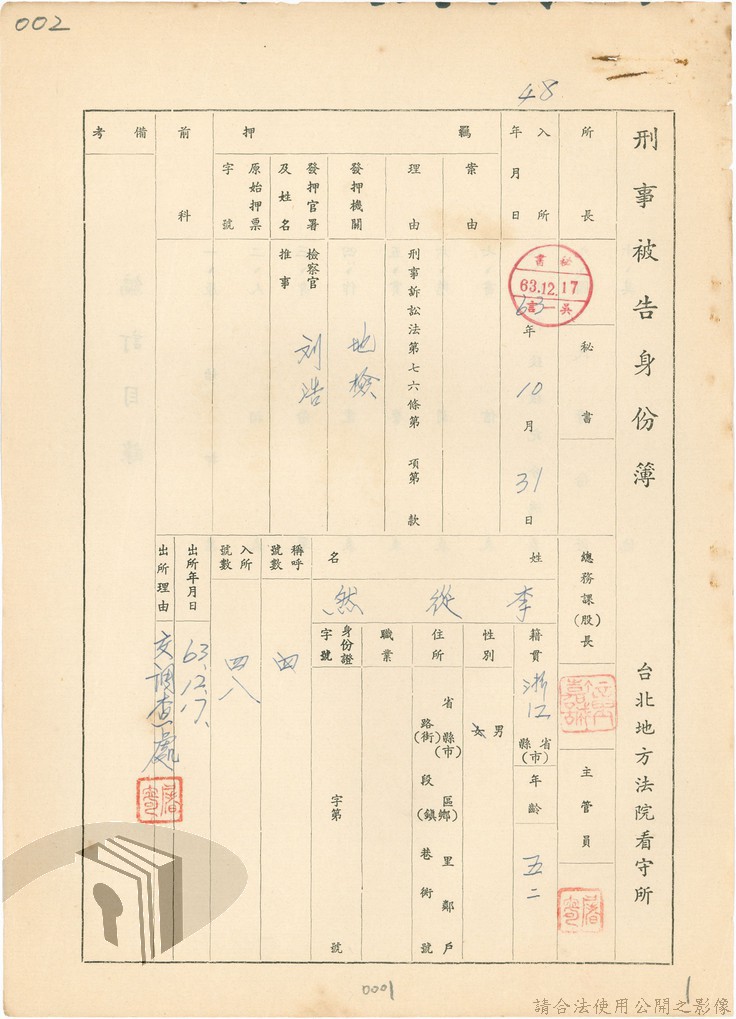 002
48
刑事被告身份簿
台北地方法院看守所
所長
秘書
總務課(股)長
主管員
入所年月日
秘書
63.12.17
吳一言
63年10月31日
羈押
案由
理由
刑事訴訟法第七六條第 項第 款
發押機關
地檢
發押官署及姓名
檢察官
推事
刘浩
原始押票字號
前科
備考
姓名
李從然
籍貫
浙江
省縣(市)
年齡
五二
性別
男女
住所
省縣(市)區鄉(鎮)里鄰戶
路(街)段巷衖號
職業
身份證字號
字第 號
稱呼號數
四
入所號數
四八
出所年月日
63.12.17.
出所理由
交調查處
0001
1
請合法使用公開之影像